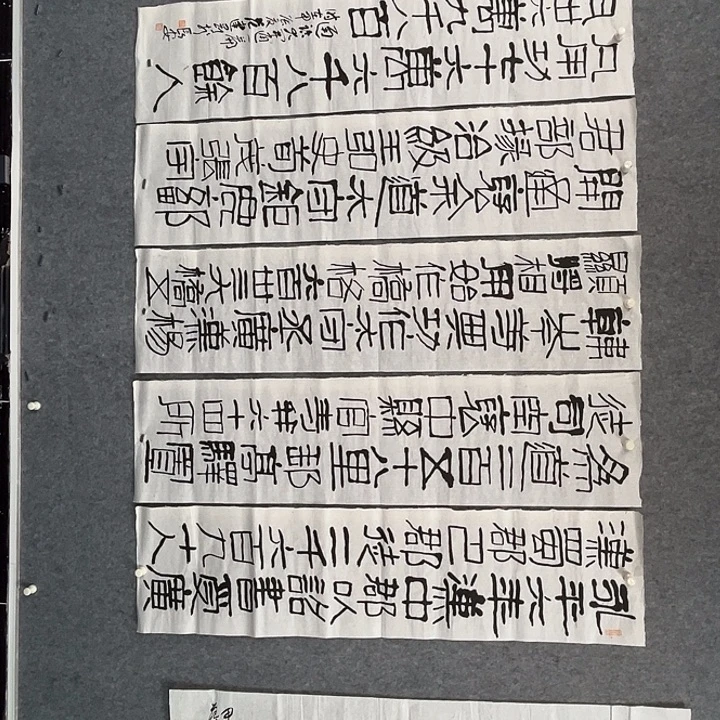 永平六年漢中郡以詔書受廣
漢蜀郡巴郡徒二千六百九十人
為道二百五十八里郵亭驛置
徒司空褒中縣官寺并六十四所
韓岑等興功作太守丞廣漢楊
顯將相用始作橋格六百卅三大橋五
開通褒余道太守鉅鹿鄐
君部掾冶級王弘史荀茂張宇
凡用功七十六萬六千八百餘人
瓦卅六萬九千八百